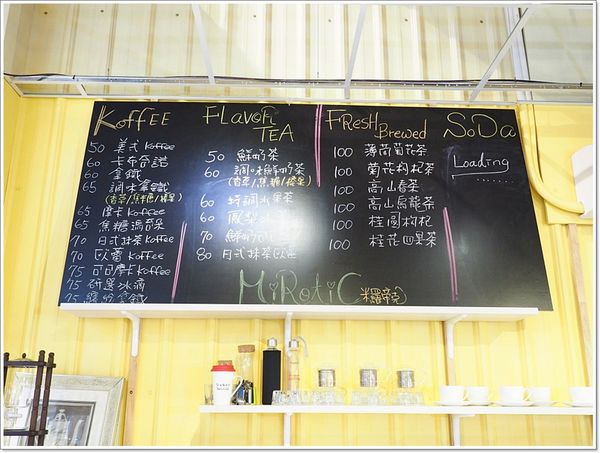 Koffee
50 美式 Koffee
60 卡布奇諾
60 拿鐵
65 調味拿鐵
(香草/焦糖/榛果)
65 摩卡 Koffee
65 焦糖瑪奇朵
70 日式抹茶 Koffee
70 歐蕾 Koffee
75 可可摩卡 Koffee
75 冰滴
75
FLavoR TEA
50 鮮奶茶
60 調味鮮奶茶
(香草/焦糖/榛果)
60 特調水果茶
60 鳳梨冰
70 鮮奶可可
80 日式抹茶歐蕾
FResh Brewed
100 薄荷菊花茶
100 菊花枸杞茶
100 高山春茶
100 高山烏龍茶
100 桂圓枸杞
100 桂花四季茶
SoDa
Loading
.......
MiRotiC 米羅帝克